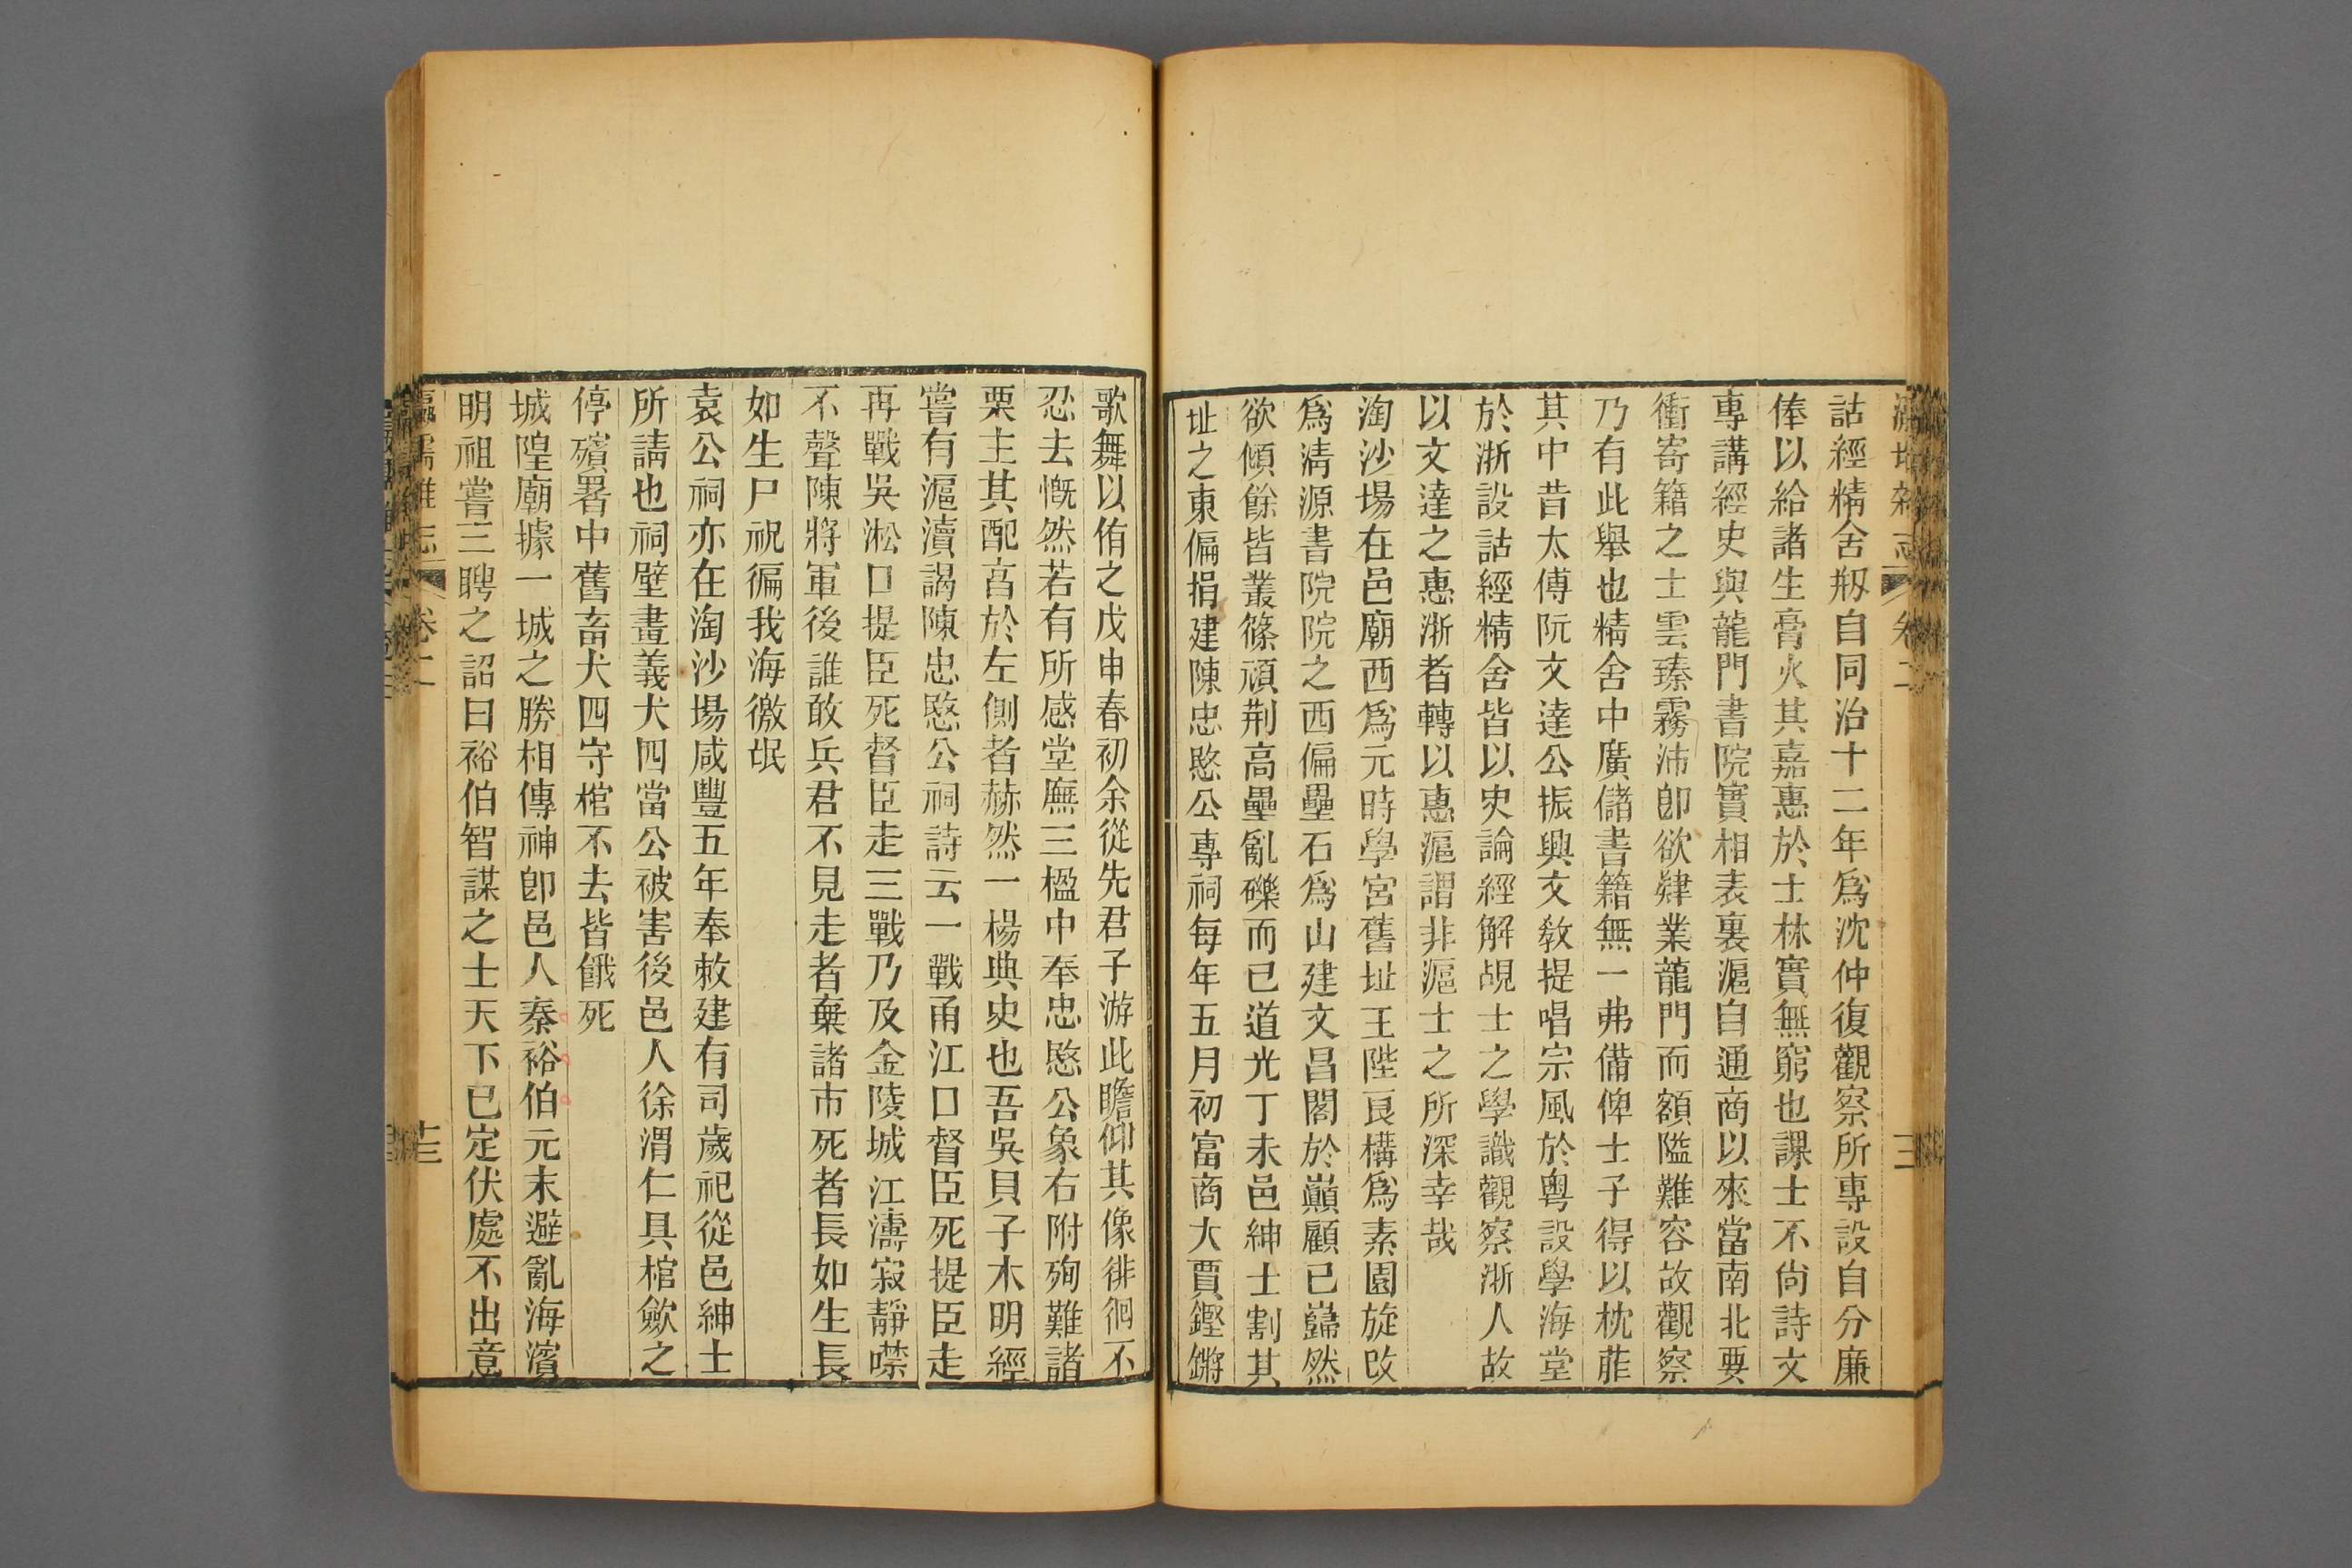 詁經精舍剏自同治十二年爲沈仲復觀察所專設自分廉
俸以給諸生膏火其嘉惠於士林實無窮也課士不尙詩文
專講經史與龍門書院實相表裏滬自通商以來當南北要
衝寄籍之士雲臻霧沛卽欲肄業龍門而額隘難容故觀察
乃有此舉也精舍中廣儲書籍無一弗備俾士子得以枕葄
其中昔太傅阮文達公振興文敎提唱宗風於粵設學海堂
於浙設詁經精舍皆以史論經解覘士之學識觀察浙人故
以文達之惠浙者轉以惠滬謂非滬士之所深幸哉
淘沙場在邑廟西爲元時學宮舊址王陛良構爲素園旋改
爲淸源書院院之西偏壘石爲山建文昌閣於巔顧已巋然
欲傾餘皆叢篠頑荆高壘亂礫而已道光丁未邑紳士割其
址之東偏捐建陳忠愍公專祠每年五月初富商大賈鏗鏘
歌舞以侑之戊申春初余從先君子游此瞻仰其像徘徊不
忍去慨然若有所感堂廡三楹中奉忠愍公象右附殉難諸
栗主其配亯於左側者赫然一楊典史也吾吳貝子木明經
嘗有滬瀆謁陳忠愍公祠詩云一戰甬江口督臣死提臣走
再戰吳淞口提臣死督臣走三戰乃及金陵城江濤寂靜噤
不聲陳將軍後誰敢兵君不見走者棄諸市死者長如生長
如生尸祝徧我海徼氓
袁公祠亦在淘沙場咸豐五年奉敕建有司歲祀從邑紳士
所請也祠壁畫義犬四當公被害後邑人徐渭仁具棺歛之
停殯署中舊畜犬四守棺不去皆餓死
城隍廟據一城之勝相傳神卽邑人秦裕伯元末避亂海濱
明祖嘗三聘之詔曰裕伯智謀之士天下已定伏處不出意
卷二